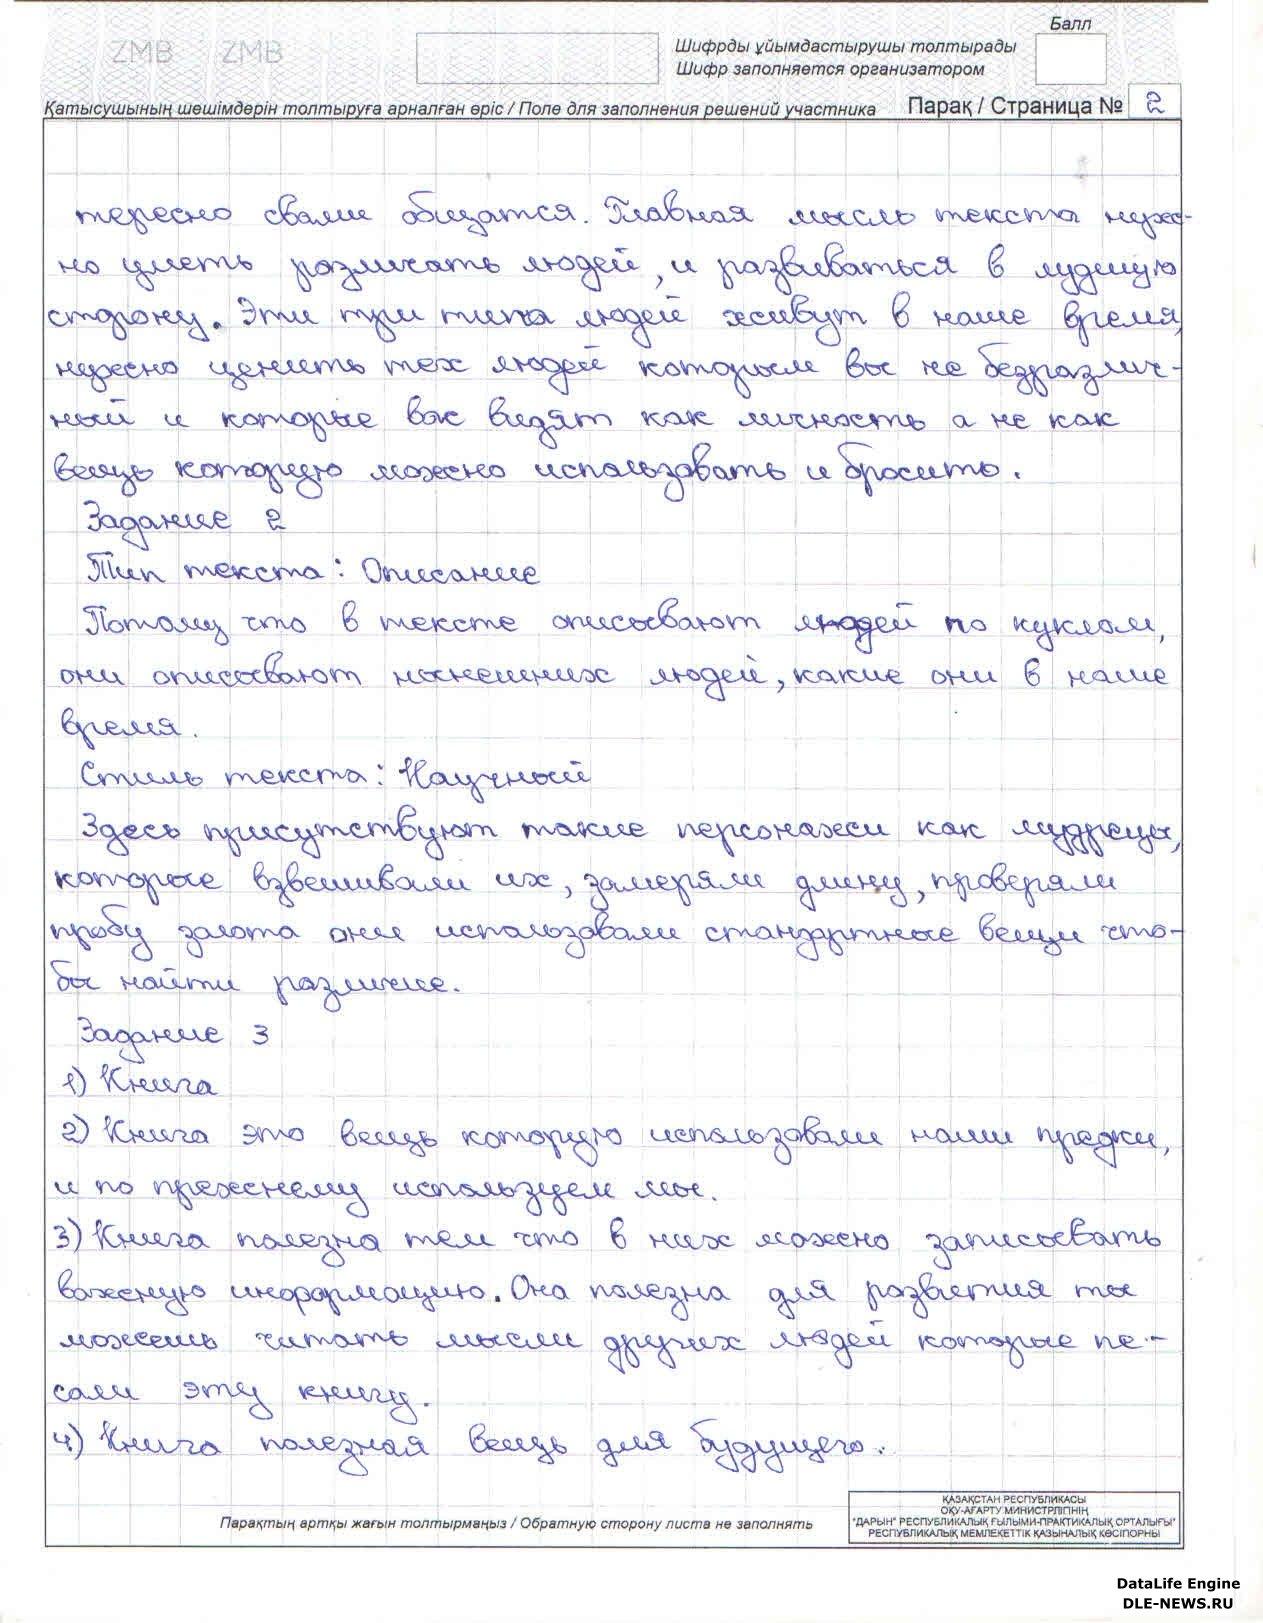 Балл
ZMB ZMB
Шифрды ұйымдастырушы толтырады
Шифр заполняется организатором
Қатысушының шешімдерін толтыруға арналған өріс / Поле для заполнения решений участника Парақ / Страница № 2
тересно свами общатся. Главная мысль текста нуж-
но уметь различать людей, и развиваться в лудшую
сторону. Эти три типа людей живут в наше время,
нужно ценить тех людей которым вы не безразлич-
ный и которые вас видят как личность а не как
вещь которую можно использовать и бросить.
Задание 2
Тип текста: Описание
Потому что в тексте описывают людей по куклам,
они описывают нынешних людей, какие они в наше
время.
Стиль текста: Научный
Здесь присутствуют такие персонажи как мудрецы,
которые взвешивали их, замеряли длину, проверяли
пробу золота они использовали стандартные вещи что-
бы найти различие.
Задание 3
1) Книга
2) Книга это вещь которую использовали наши предки,
и по прежнему используем мы.
3) Книга полезна тем что в них можно записывать
важную информацию. Она полезна для развития ты
можешь читать мысли других людей которые пе-
сали эту книгу.
4) Книга полезная вещь для будущего.
Парақтың артқы жағын толтырмаңыз / Обратную сторону листа не заполнять
ҚАЗАҚСТАН РЕСПУБЛИКАСЫ
ОҚУ-АҒАРТУ МИНИСТРЛІГІНІҢ
"ДАРЫН" РЕСПУБЛИКАЛЫҚ ҒЫЛЫМИ-ПРАКТИКАЛЫҚ ОРТАЛЫҒЫ"
РЕСПУБЛИКАЛЫҚ МЕМЛЕКЕТТІК ҚАЗЫНАЛЫҚ КӘСІПОРНЫ
DataLife Engine
DLE-NEWS.RU